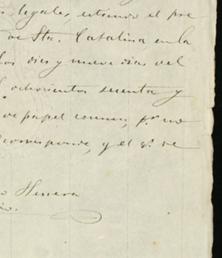 legales, estando el pre
de Sta. Catalina en la
dies y nueve dias del
ochocientos secenta y
de papel comun, pr. no
corresponde, y el Sr. Ve
Herrera